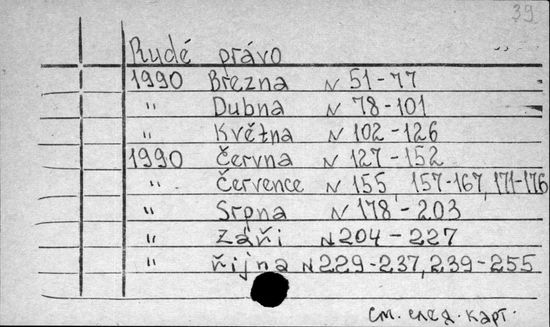 39
Rudé právo
1990 Března N 51-77
" Dubna N 78-101
" Května N 102-126
1990 Června N 127-152
" Července N 155, 157-167, 171-176
" Srpna N 178-203
" Záři N 204-227
" Řijna N 229-237, 239-255
см. след. карт.